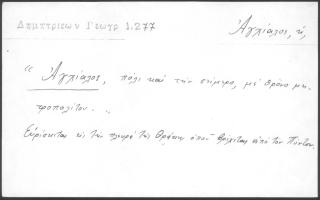 Δημητριέων Γεωγρ 1.277
Ἀγχίαλος, ἡ,
" Ἀγχίαλος, πόλι καὶ τὴν σήμερο, μὲ θρόνο μη-
τροπολίτου. "
Εὑρίσκεται εἰς τὴν πλευρὰ τῆς Θράκης ὁποῦ βρέχεται ἀπὸ τὸν Πόντον.